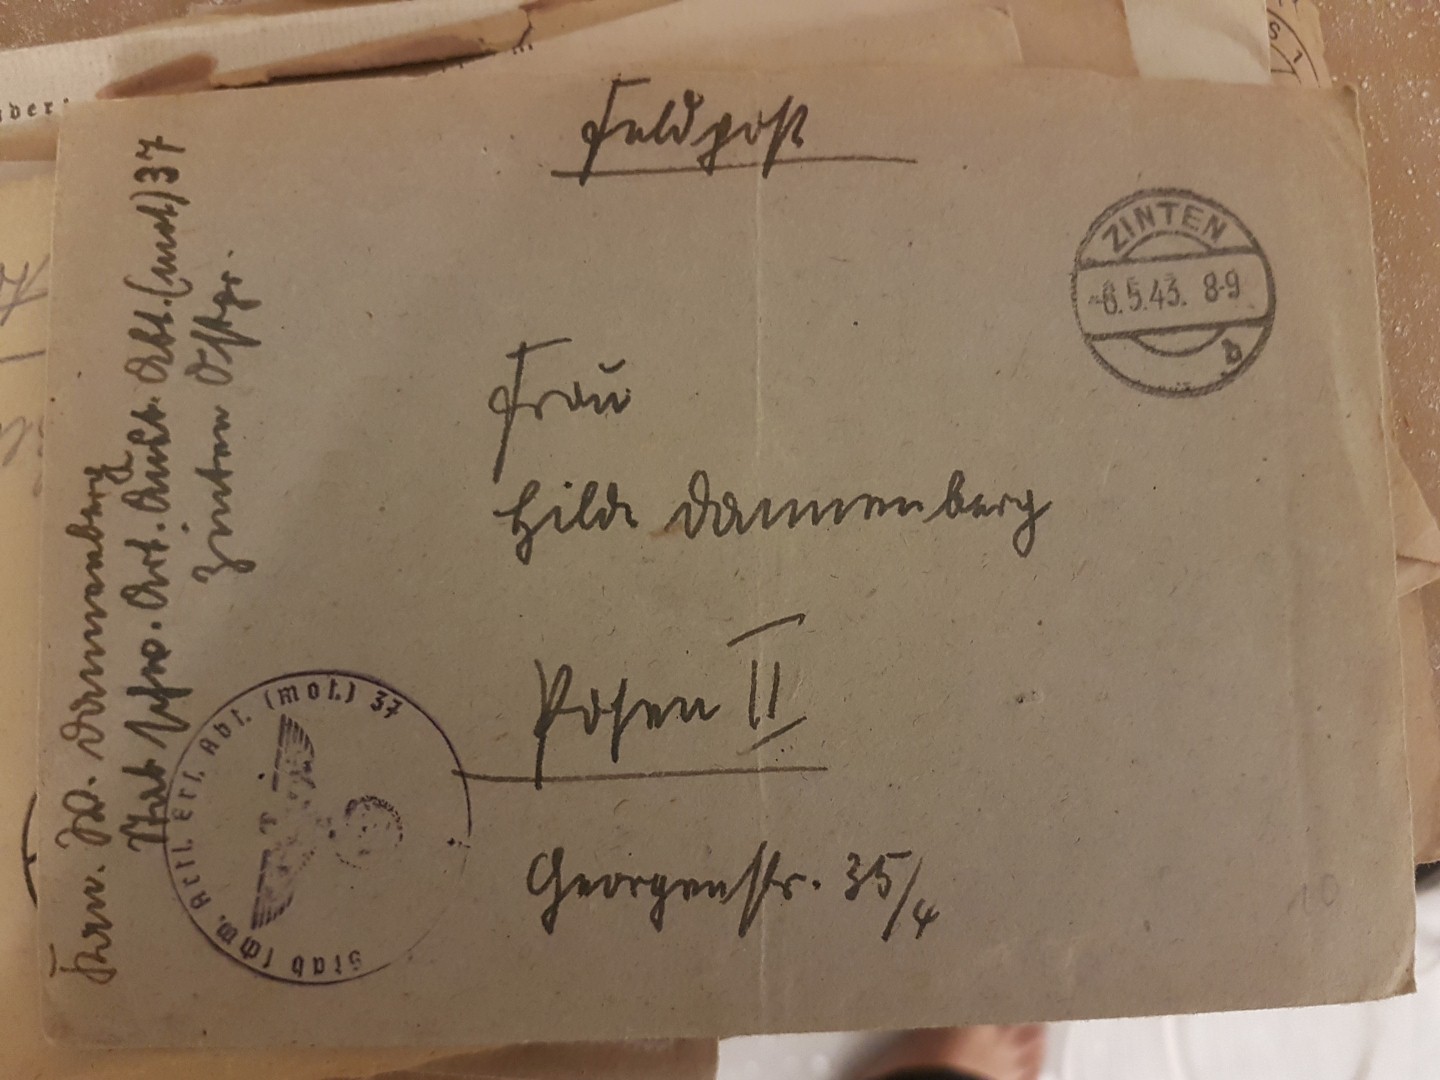 Feldpost
ZINTEN
-6.5.43. 8-9
b
Frau
Hilde Dannenberg
Posen II
Georgenstr. 35/4
Dannenberg
Stab schw. Art. Abt. (mot) 37
Zinten Ostpr.
Stab schw. Artl. Ers. Abt. (mot.) 37
10